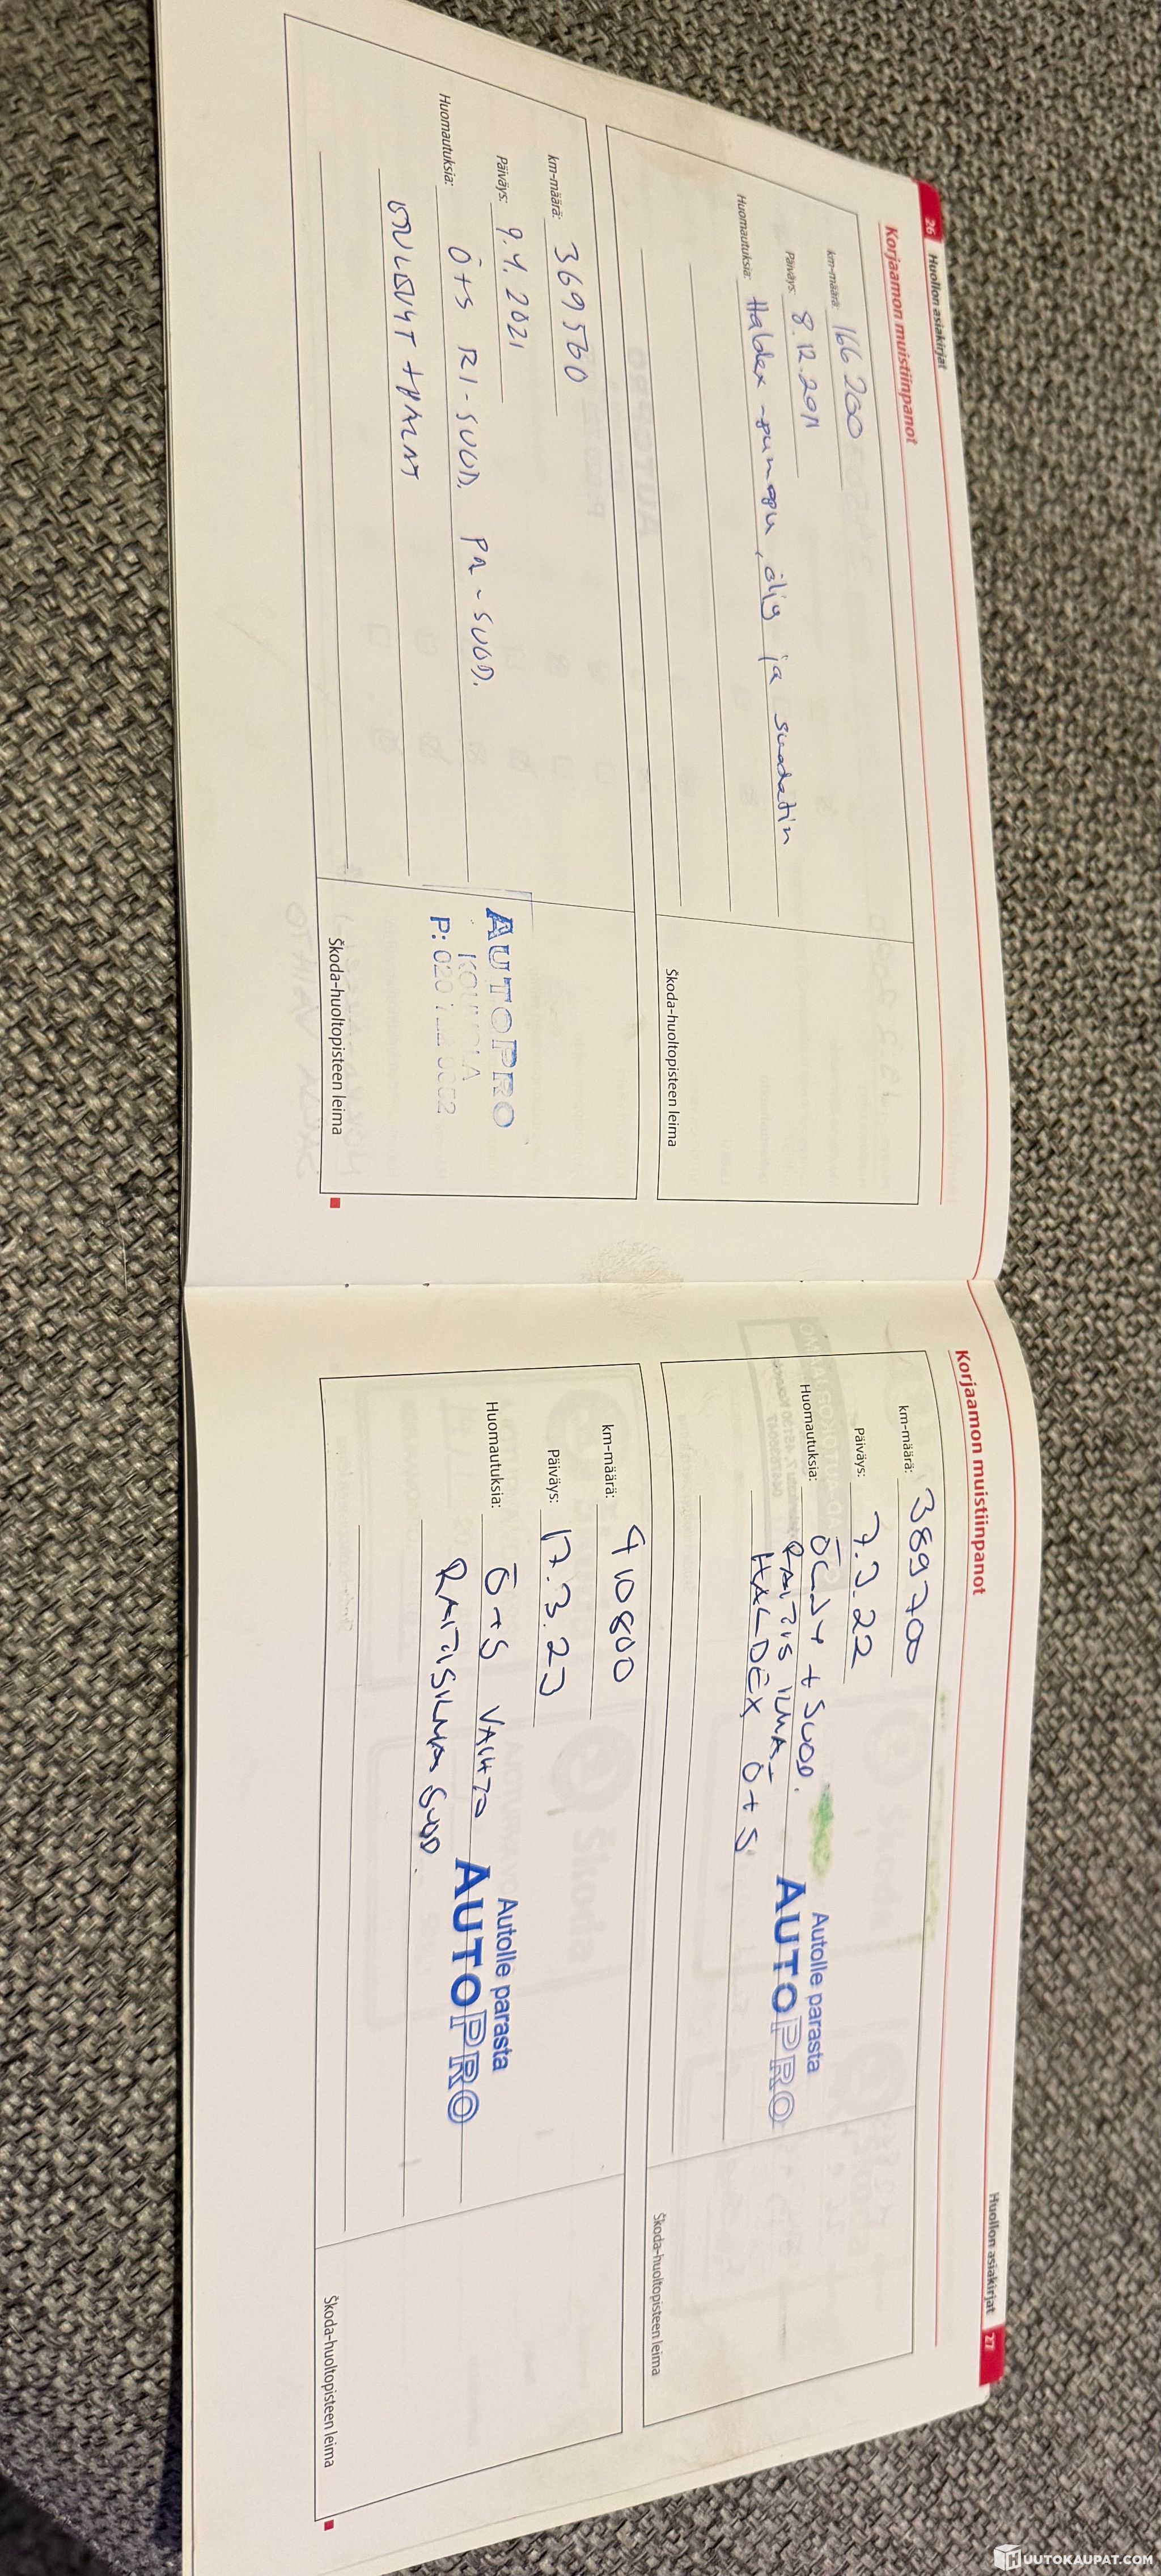 26 Huollon asiakirjat
Korjaamon muistiinpanot
km-määrä: 166 200
Päiväys: 8.12.2011
Huomautuksia: Haldex -pumppu, öljy ja suodatin
Škoda-huoltopisteen leima
km-määrä: 369560
Päiväys: 9.4.2021
Huomautuksia: Ö+S RI-SUOD. PA-SUOD.
+HALAT
AUTOPRO
P: 020
Škoda-huoltopisteen leima
Huollon asiakirjat 27
Korjaamon muistiinpanot
km-määrä: 389700
Päiväys: 7.3.22
Huomautuksia: ÖLJY + SUOD.
RAITIS ILMA-
HALDEX Ö+S.
Autolle parasta
AUTOPRO
Škoda-huoltopisteen leima
km-määrä: 410800
Päiväys: 17.3.23
Huomautuksia: Ö+S VAIHTO
RAITISILMA SUOD.
Autolle parasta
AUTOPRO
Škoda-huoltopisteen leima
HUUTOKAUPAT.COM